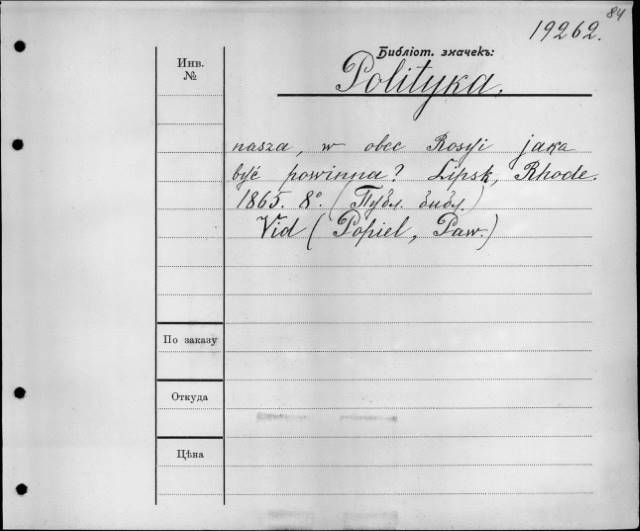 84
19262.
Библіот. значекъ:
Инв.
№
Polityka.
nasza, w obec Rosyi jaka
być powinna? Lipsk, Rhode.
1865. 8°. (Публ. библ.)
Vid (Popiel, Paw.)
По заказу
Откуда
Цѣна